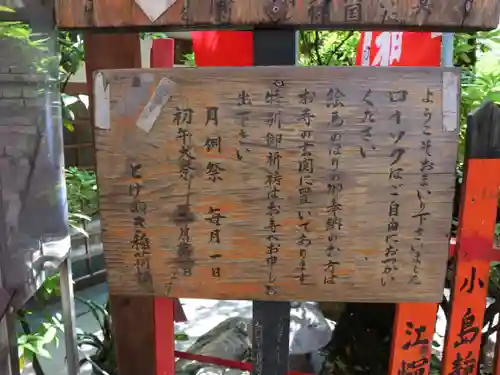 ようこそおまいり下さいました
ロイソクはご自由におつかい
ください
絵馬のぼりの御奉納のお方は
お寺の玄関に置いてあります
特別御祈祷はお寺へお申し
出下さい
月例祭 毎月一日
初午大祭
とげぬき稲荷
小島
江